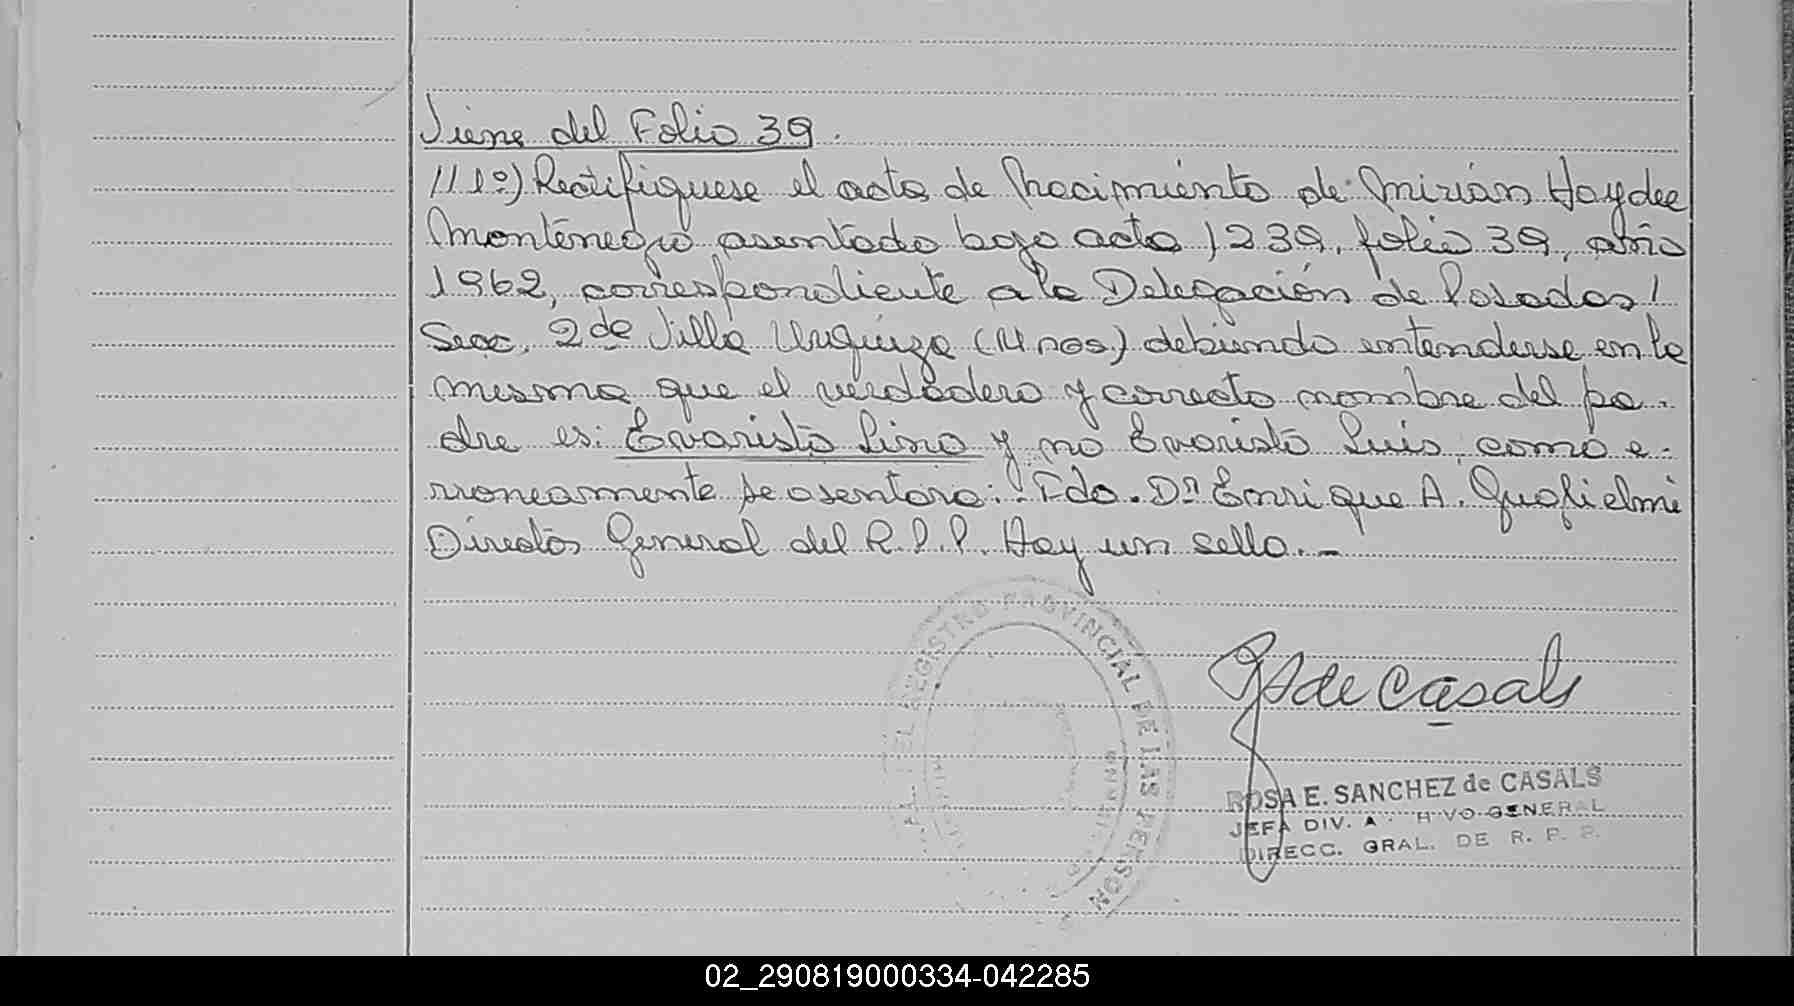 Viene del Folio 39.
/// 1º) Rectifíquese el acta de Nacimiento de Mirian Haydee
Montenegro asentada bajo acta 1239, folio 39, año
1962, correspondiente a la Delegación de Posadas/
Secc. 2da Villa Urquiza (Mnes.) debiendo entenderse en la
misma que el verdadero y correcto nombre del pa-
dre es: Evaristo Lino y no Evaristo Luis, como e-
rroneamente se asentara: Fdo. Dn Enrique A. Guglielmi
Director General del R.P.P. Hay un sello.-
REGISTRO PROVINCIAL DE LAS PERSON
de Casals
ROSA E. SANCHEZ de CASALS
JEFA DIV. GENERAL
DIRECC. GRAL. DE R. P. P.
02_290819000334-042285